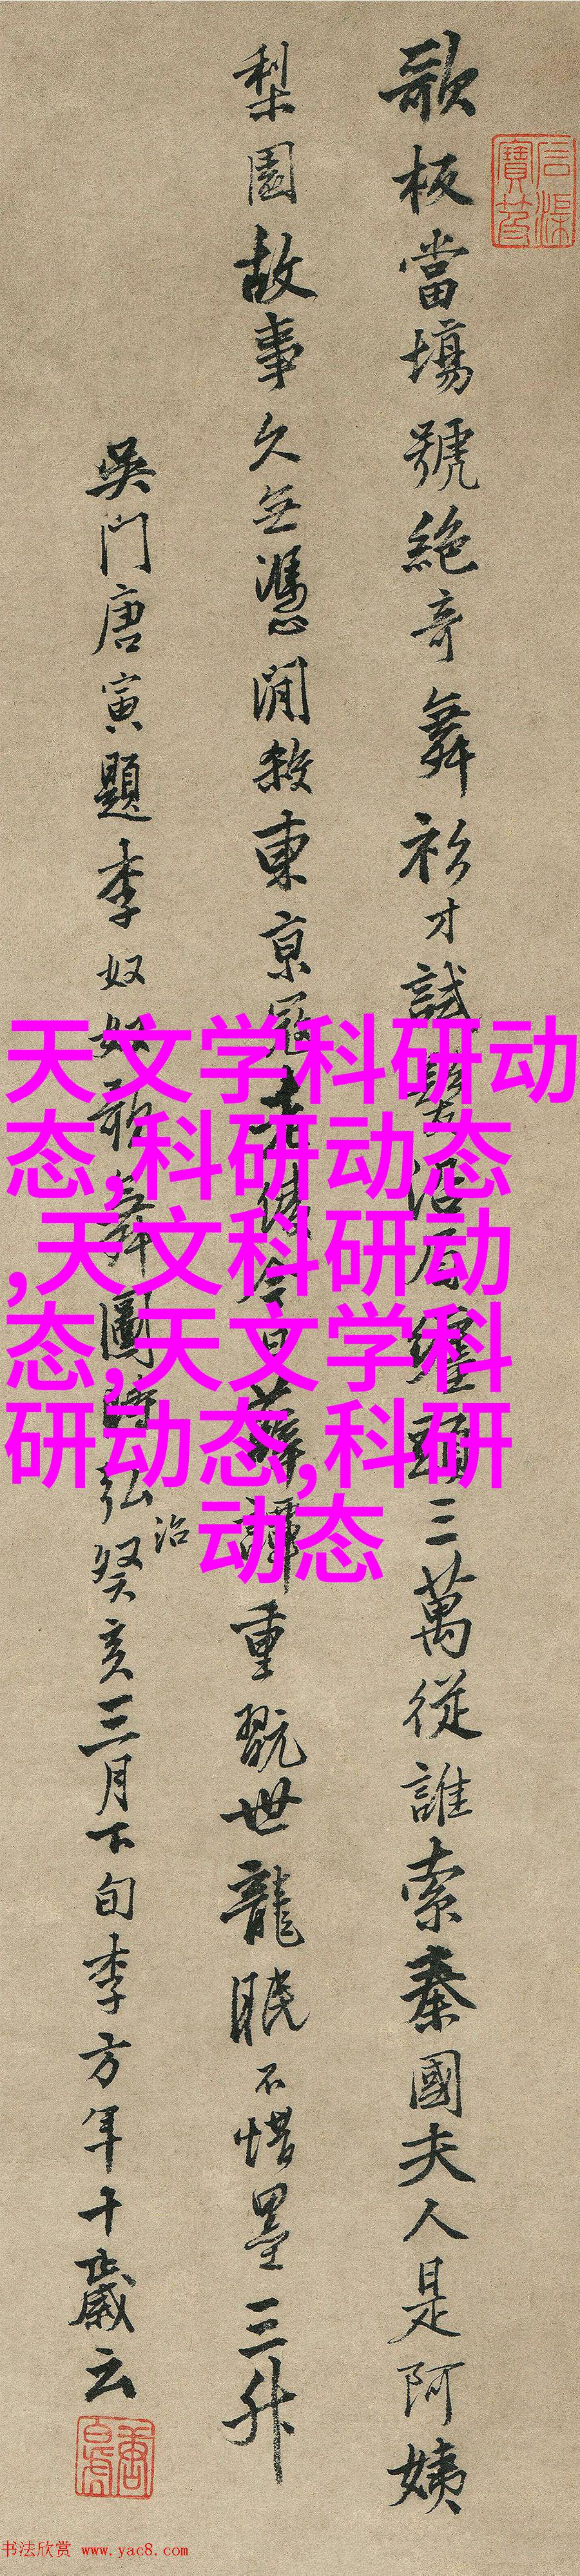 歌板當場號絶奇舞衫才試沿肩纏頭三萬從誰索秦國夫人是阿姨
梨園故事久無憑閒殺東京冠今日譚重翫世龍眠不惜墨三升
吳門唐寅題李奴奴歌舞圖時弘治癸亥三月下旬李方年十歲云
天文学科研动
态,科研动态
,天文科研动
态,天文学科
研动态,科研
动态
书法欣赏 www.yac8.com